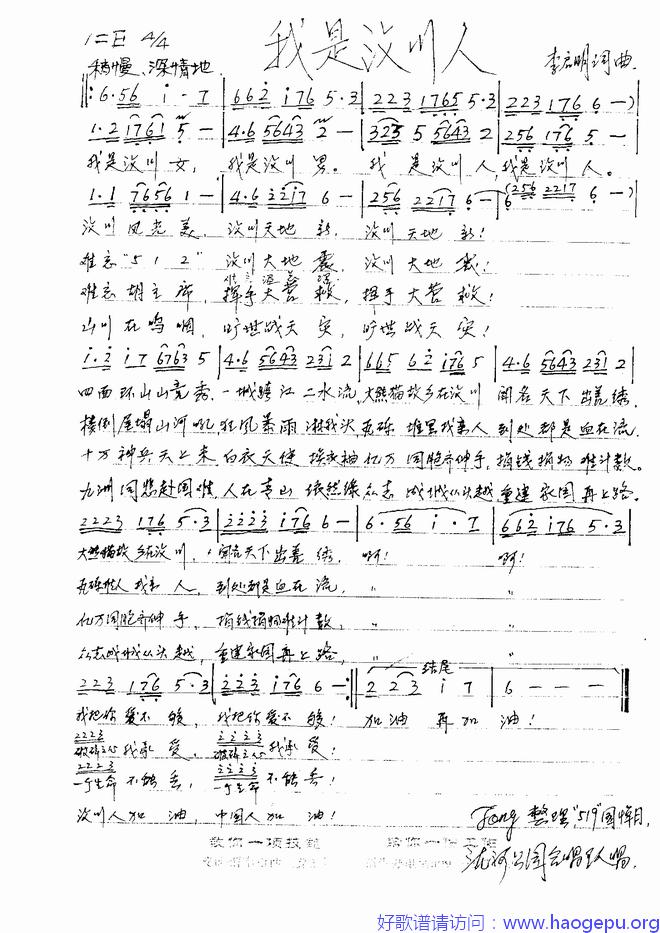 1=E 4/4
我是汶川人
稍慢、深情地
李启明词曲
‖: 6·56 i·7 | 662 i76 5·3 | 223 1765 5·3 | 223 176 6 —)
1·2 1761 5 — | 4·6 5643 2 — | 325 5 5643 2 | 256 176 5 —
我是汶川女, 我是汶川男。 我是汶川人,我是汶川人。
1·1 7656 1 — | 4·6 2217 6 — | 256 2217 6 — | 6 (256 2217 6 —)
汶川风光美, 汶川天地新, 汶川天地新!
难忘“512” 汶川大地震, 汶川大地震!
难忘胡主席, 挥手大营救, 挥手大营救!
山川在呜咽, 旷世战天灾, 旷世战天灾!
i·2 i7 6763 5 | 4·6 5643 231 2 | 665 62 i76 5 | 4·6 5643 231 2 |
四面环山山竞秀, 一城跨江二水流, 大熊猫故乡在汶川 闻名天下出善绣。
楼倒屋塌山河吼, 狂风暴雨淋我头, 瓦砾堆里找亲人 到处都是血在流。
十万神兵天上来, 白衣天使挽衣袖, 亿万同胞齐伸手, 捐钱捐物难计数。
九洲同悲赴国难, 人在青山依然绿, 众志成城从头越 重建家园再上路。
2223 176 5·3 | 2223 i76 6 — | 6·56 i·7 | 662 i76 5·3 |
大熊猫故乡在汶川, 闻名天下出善绣, 啊! 啊!
瓦砾堆里找亲人, 到处都是血在流, 〃 〃
亿万同胞齐伸手, 捐钱捐物难计数, 〃 〃
众志成城从头越, 重建家园再上路, 〃 〃
结尾
223 176 5·3 | 223 i76 6 — :‖ 2 23 i 7 | 6 — — — ‖
我把你爱不够, 我把你爱不够! 加油再加油!
2223 2223
我承受, 我承受!
2223 2223
一个生命不能丢, 不能丢!
汶川人加油, 中国人加油!
Jong 整理“519”国悼日,
公园合唱
教你一项技能
好歌谱请访问:www.haogepu.org